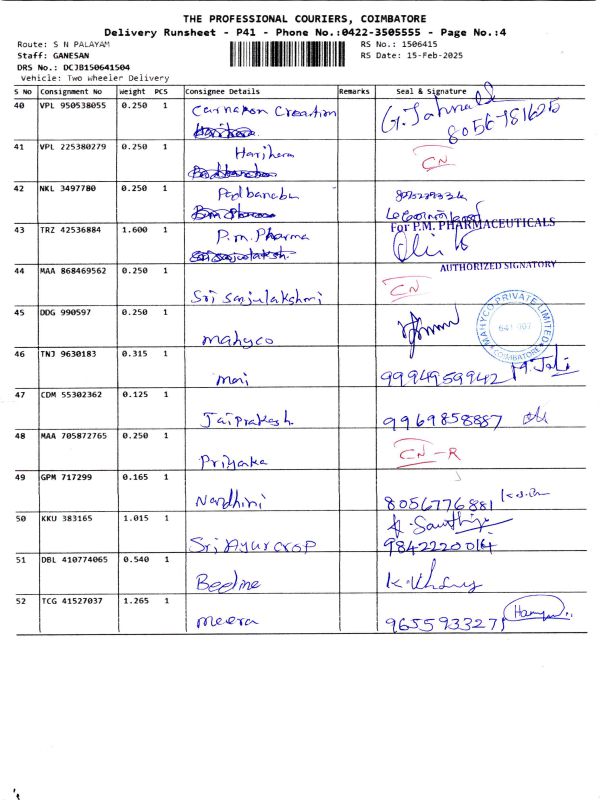 THE PROFESSIONAL COURIERS, COIMBATORE
Delivery Runsheet - P41 - Phone No.:0422-3505555 - Page No.:4
Route: S N PALAYAM RS No.: 1506415
Staff: GANESAN RS Date: 15-Feb-2025
DRS No.: DCJB150641504
Vehicle: Two Wheeler Delivery
S No Consignment No Weight PCS Consignee Details Remarks Seal & Signature
40 VPL 950538055 0.250 1 Creation
41 VPL 225380279 0.250 1 Harihara CN
42 NKL 3497780 0.250 1 Padbanabu
43 TRZ 42536884 1.600 1 P.m. Pharma For P.M. PHARMACEUTICALS
AUTHORIZED SIGNATORY
44 MAA 868469562 0.250 1 Sri Sanjulakshmi CN
45 DDG 990597 0.250 1 Mahyco MAHYCO PRIVATE LIMITED 641-007 COIMBATORE
46 TNJ 9630183 0.315 1 Mari 9994959942
47 CDM 55302362 0.125 1 Jaiprakash 9969858887
48 MAA 705872765 0.250 1 Priyanka CN-R
49 GPM 717299 0.165 1 Nandhini 8056776881
50 KKU 383165 1.015 1 Sri Ayurcrop 9842220014
51 DBL 410774065 0.540 1 Beeline
52 TCG 41527037 1.265 1 meera 9655933275